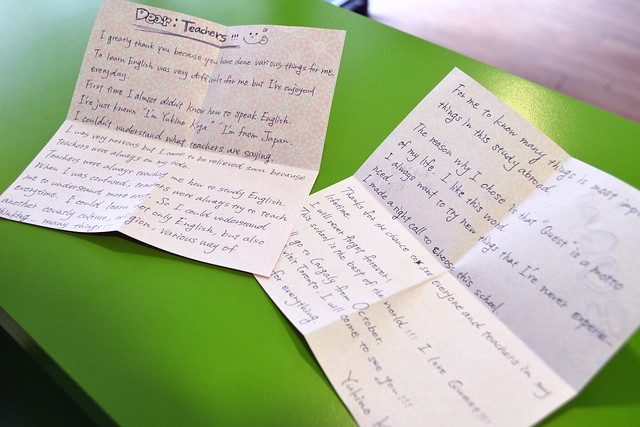 Dear: Teachers!!!
I greatly thank you because you have done various things for me.
To learn English was very difficult for me but I've enjoyed
everyday.
First time I almost didn't know how to speak English.
I've just known "I'm Yukino Kiga" "I'm from Japan"
I couldn't understand what teachers are saying.
I was very nervous but I came to be relieved soon because
Teachers were always on my side.
Teachers were always me how to study English.
When I was confused, teachers were always try to teach
me to understand more and So I could understand
everyone. I could learn not only English, but also
another country culture, religion, various way of
thinking many things
For me to know many things is most imp
things in this study abroad
The reason why I chose is that Quest" is a motto
of my life. I like this word
I always want to try new things that I've never experie-
nced.
I made a right call to choose this school
Thanks for the chance to see everyone and teachers in my
lifetime.
I will never forget forever!
This school is the best of the world!!! I love Quest!!!
I'll go to Calgaly from October.
visit Toronto, I will come to see you!!!
for everything
Yukino K